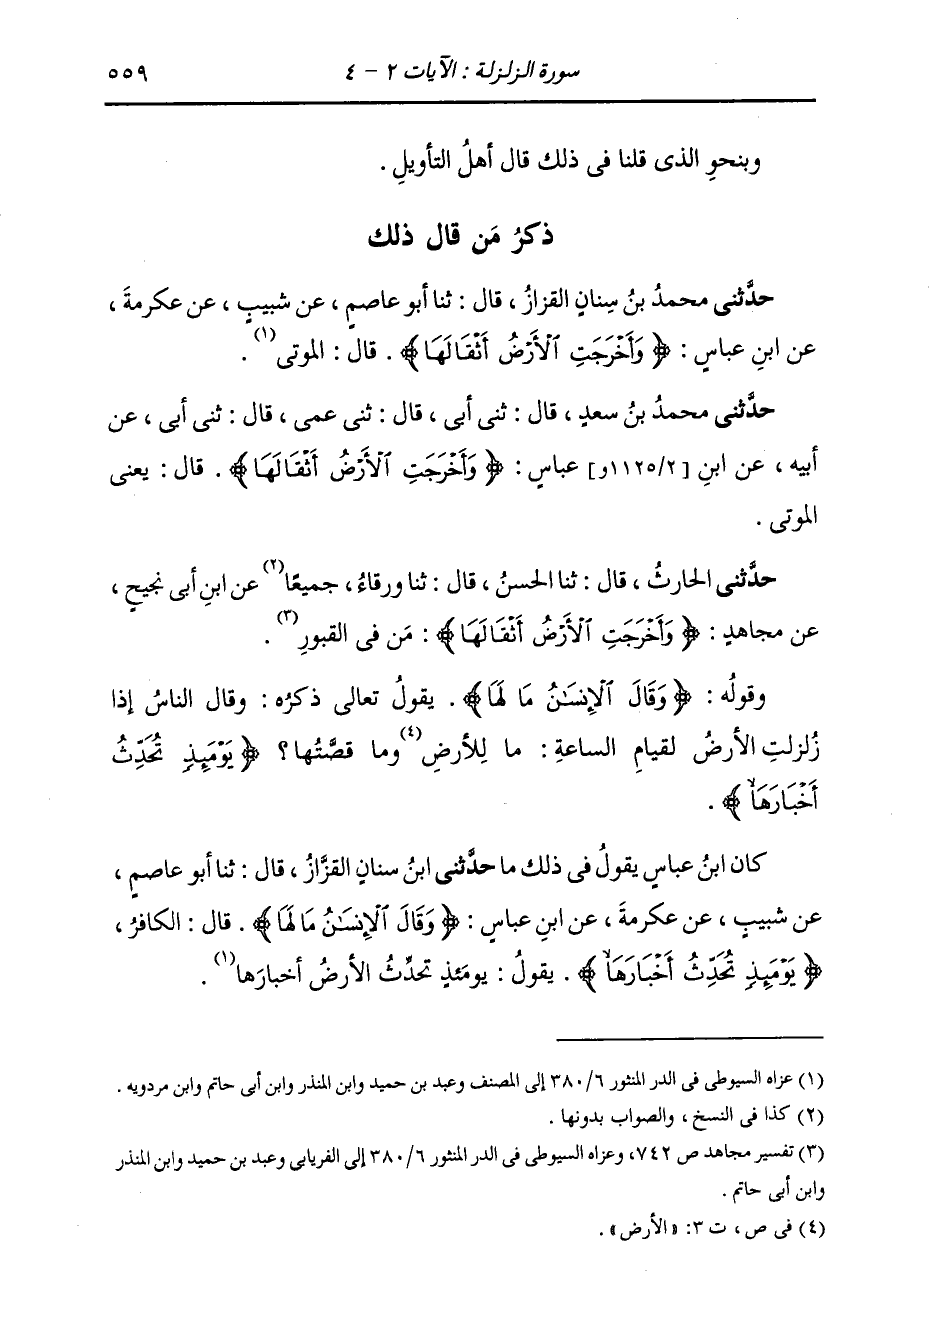 سورة الزلزلة : الآيات ٢ - ٤ ٥٥٩
وبنحوِ الذى قلنا فى ذلك قال أهلُ التأويلِ .
ذكرُ مَن قال ذلك
حدَّثنى محمدُ بنُ سِنانٍ القزازُ ، قال : ثنا أبو عاصمٍ ، عن شبيبٍ ، عن عكرمةَ ،
عن ابنِ عباسٍ : ﴿ وَأَخْرَجَتِ ٱلْأَرْضُ أَثْقَالَهَا ﴾ . قال : الموتى(١) .
حدَّثنى محمدُ بنُ سعدٍ ، قال : ثنى أبى ، قال : ثنى عمى ، قال : ثنى أبى ، عن
أبيه ، عن ابنِ [١١٢٥/٢و] عباسٍ : ﴿ وَأَخْرَجَتِ ٱلْأَرْضُ أَثْقَالَهَا ﴾ . قال : يعنى
الموتى .
حدَّثنى الحارثُ ، قال : ثنا الحسنُ ، قال : ثنا ورقاءُ ، جميعًا(٢) عن ابنِ أبى نجيحٍ ،
عن مجاهدٍ : ﴿ وَأَخْرَجَتِ ٱلْأَرْضُ أَثْقَالَهَا ﴾ : مَن فى القبورِ(٣) .
وقولُه : ﴿ وَقَالَ ٱلْإِنسَٰنُ مَا لَهَا ﴾ . يقولُ تعالى ذكرُه : وقال الناسُ إذا
زُلزلتِ الأرضُ لقيامِ الساعةِ : ما لِلأرضِ(٤) وما قصَّتُها ؟ ﴿ يَوْمَئِذٍ تُحَدِّثُ
أَخْبَارَهَا ﴾ .
كان ابنُ عباسٍ يقولُ فى ذلك ما حدَّثنى ابنُ سنانٍ القزَّازُ ، قال : ثنا أبو عاصمٍ ،
عن شبيبٍ ، عن عكرمةَ ، عن ابنِ عباسٍ : ﴿ وَقَالَ ٱلْإِنسَٰنُ مَا لَهَا ﴾ . قال : الكافرُ ،
﴿ يَوْمَئِذٍ تُحَدِّثُ أَخْبَارَهَا ﴾ . يقولُ : يومَئذٍ تحدِّثُ الأرضُ أخبارَها(١) .
(١) عزاه السيوطى فى الدر المنثور ٣٨٠/٦ إلى المصنف وعبد بن حميد وابن المنذر وابن أبى حاتم وابن مردويه .
(٢) كذا فى النسخ ، والصواب بدونها .
(٣) تفسير مجاهد ص ٧٤٢، وعزاه السيوطى فى الدر المنثور ٣٨٠/٦ إلى الفريابى وعبد بن حميد وابن المنذر
وابن أبى حاتم .
(٤) فى ص ، ت ٣: «الأرض» .